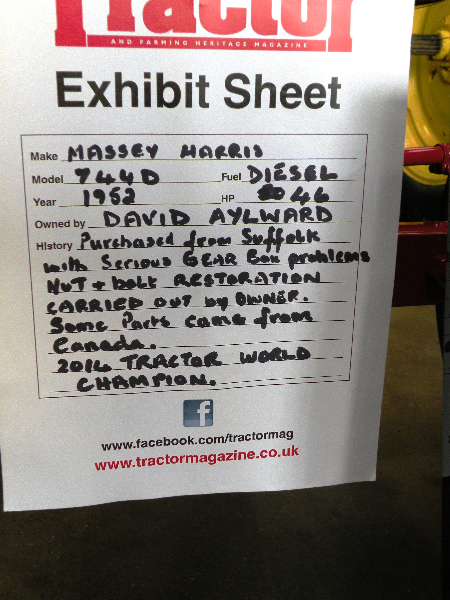 Tractor
AND FARMING HERITAGE MAGAZINE
Exhibit Sheet
Make MASSEY HARRIS
Model 744D Fuel DIESEL
Year 1952 HP 46
Owned by DAVID AYLWARD
History Purchased from Suffolk
with Serious GEAR Box problems
NUT + bolt RESTORATION
CARRIED OUT by OWNER.
Some Parts came from
Canada.
2014 TRACTOR WORLD
CHAMPION.
f
www.facebook.com/tractormag
www.tractormagazine.co.uk